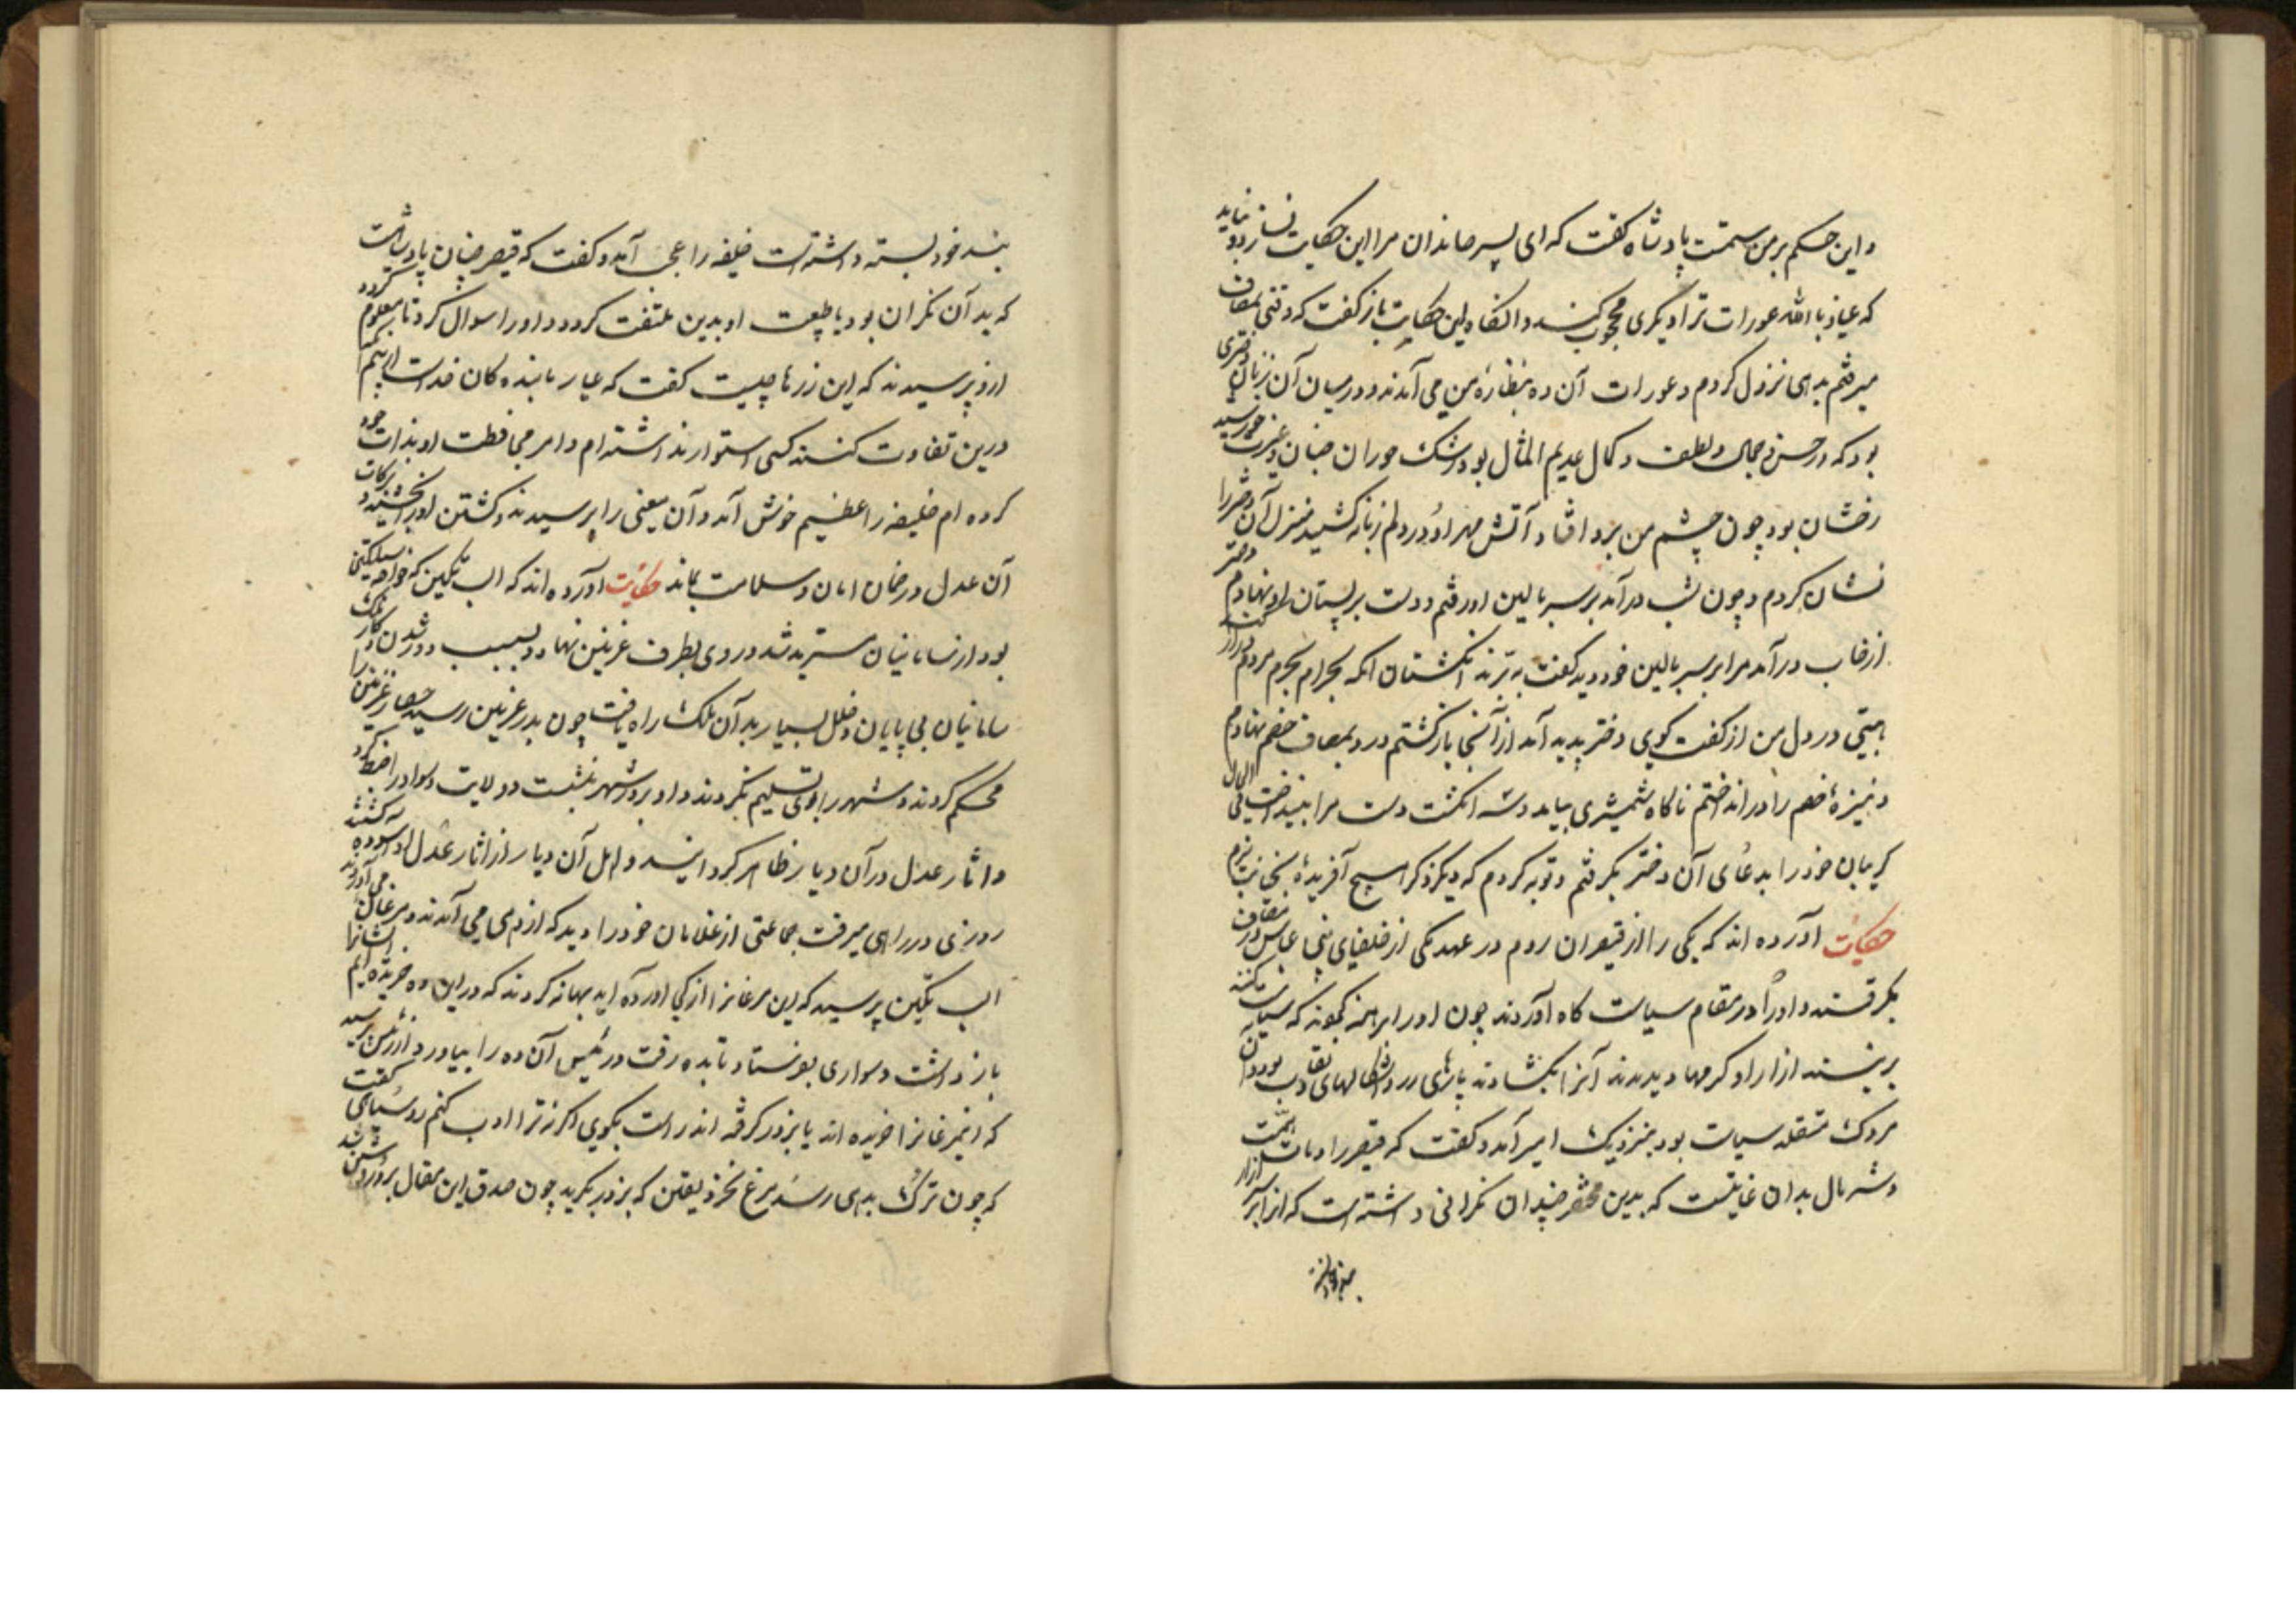 و این حکم بر من ستمست پادشاه کفت که ای پسر صاندان مرا این حکایت زدو نباید
که عیاذ بالله عورات ترا دیکری محجوب کند و انکاه این حکایت باز کفت که وقتی بمصاف
میرفتم بدهی نزول کردم و عورات آن ده بنظارهٔ من می آمدند و در میان آن زنان دختری
بود که در حسن و جمال و لطف و کمال عدیم المثال بود رشک حوران جنان و غیرت خورشید
رخشان بود چون چشم من برو افتاد آتش مهر او در دلم زبانه کشید منزل آن دختر را
نشان کردم و چون شب درآمد بر سر بالین او رفتم و دست بر پستان او نهادم دختر
از خواب درآمد مرا بر سر بالین خود دید کفت بریزند انکشتان انکه بحرام بحرم مردم دراز کند
هیبتی در دل من از کفت کوی دختر پدید آمد از آنجا باز کشتم و رو بمصاف خصم نهادم
و نیزهٔ خصم را در انداختم ناکاه شمشیری بیامد و سه انکشت دست مرا بینداخت فی الحال
کریبان خود را بدعای آن دختر بکرفتم و توبه کردم که دیکر ذکر هیچ آفریدهٔ بخیانت نبرم
حکایت آورده اند که یکی را از قیصران روم در عهد یکی از خلفای بنی عباس در مصاف
بکرفتند و او را در مقام سیاست کاه آوردند چون او را برهنه کمونه که سیاست کنند
بر نیند ازار او کرمها دیدند آنرا بکشادند پارهای زر و
مردک متقلد سیاست بود بنزدیک امیر آمد و کفت که قیصر را همت
و شره مال بدان غایتست که بدین محقر چندان نکرانی داشته است که از ابر ازار
بند خود بسته داشته است خلیفه را عجب آمد و کفت که قیصر چنان پادشاهست
که بدان نکران بود یا طبیعت او بدین ملتفت کردد او را سوال کردند تا معلوم کردد
ازو پرسیدند که این زرها چیست کفت که عیار بابنده کان خداست از بیم آنکه
درین تفاوت کنند کسی استوار نداشته ام و امر محافظت او بذات خود
کرده ام خلیفه را عظیم خوش آمد و آن معنی را پرسیدند و کشتن او را بخشید و ببرکات
آن عدل در ضمان امان و سلامت بماند حکایت آورده اند که الب تکین که خواجه سبکتکین
بود از سامانیان مسترید شد و روی بطرف غزنین نهاد و بسبب دور شدن او کار ملک
سامانیان بی پایان و خلل بسیار بدان ملک راه یافت چون بدر غزنین رسید حصار غزنین را
محکم کردند و شهر را بوی تسلیم نکردند و او بر در شهر بنشست و ولایت و سواد را ضبط کرد
و اثار عدل در آن دیار ظاهر کردانید و اهل آن دیار از اثار عدل او آسوده کشتند
روزی در راهی میرفت جماعتی از غلامان خود را دید که از دهی می آمدند و مرغان می آورند
الب تکین پرسید که این مرغانرا از کجا آورده اید بهانه کردند که در این ده خریده ایم ایشانرا
باز داشت و سواری بفرستاد تا بده رفت و رئیس آن ده را بیاورد و از رئیس پرسید
که اینمرغانرا خریده اند یا بزور کرفته اند راست بکوی اکر نه ترا ادب کنم روستای کفت
که چون ترک بدهی رسد مرغ نخرد یقین که بزور بکیرد چون صدق این مقال برو روشن شد